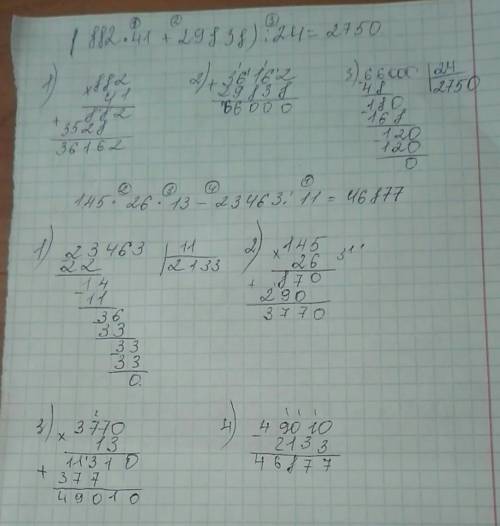 ① ② ③
(882·41 + 29838) : 24 = 2750
1) ×882
41
882
+
3528
36162
2) + 36162
29838
66000
3) 66000 | 24
48 | 2750
180
-168
120
-120
0
145 · 26 · 13 - 23463 : 11 = 46877
1) 23463 | 11
22 | 2133
14
-11
36
33
33
33
0
2) ×145
26
+ 870
290
3770
3) × 3770
13
+ 11310
377
49010
4) - 49010
2133
46877